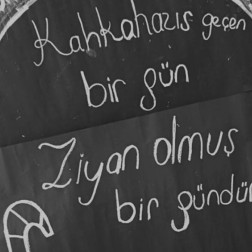 Kahkahasız geçen
bir gün
Ziyan olmuş
bir gündür